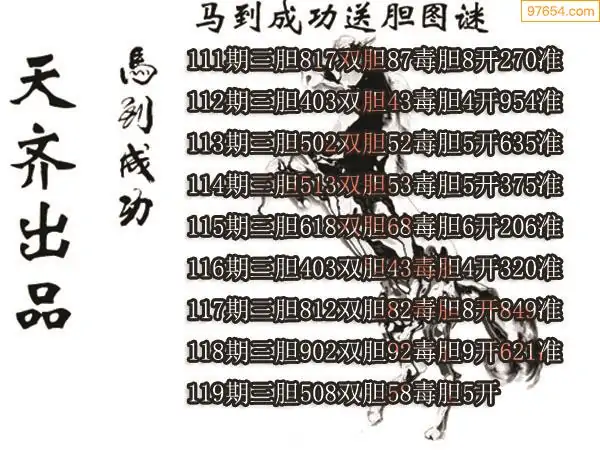 马到成功送胆图谜
97654.com
天齐出品
馬到成功
111期三胆817双胆87毒胆8开270准
112期三胆403双胆43毒胆4开954准
113期三胆502双胆52毒胆5开635准
114期三胆513双胆53毒胆5开375准
115期三胆618双胆68毒胆6开206准
116期三胆403双胆43毒胆4开320准
117期三胆812双胆82毒胆8开849准
118期三胆902双胆92毒胆9开621准
119期三胆508双胆58毒胆5开